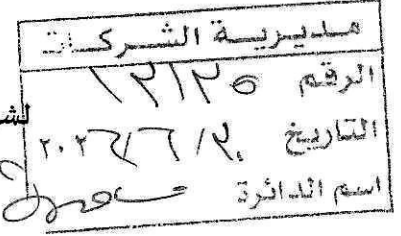 مديرية الشركات
الرقم ١٢١٢٥
التاريخ ٢٠/٦/٢٠٢٦
اسم الدائرة